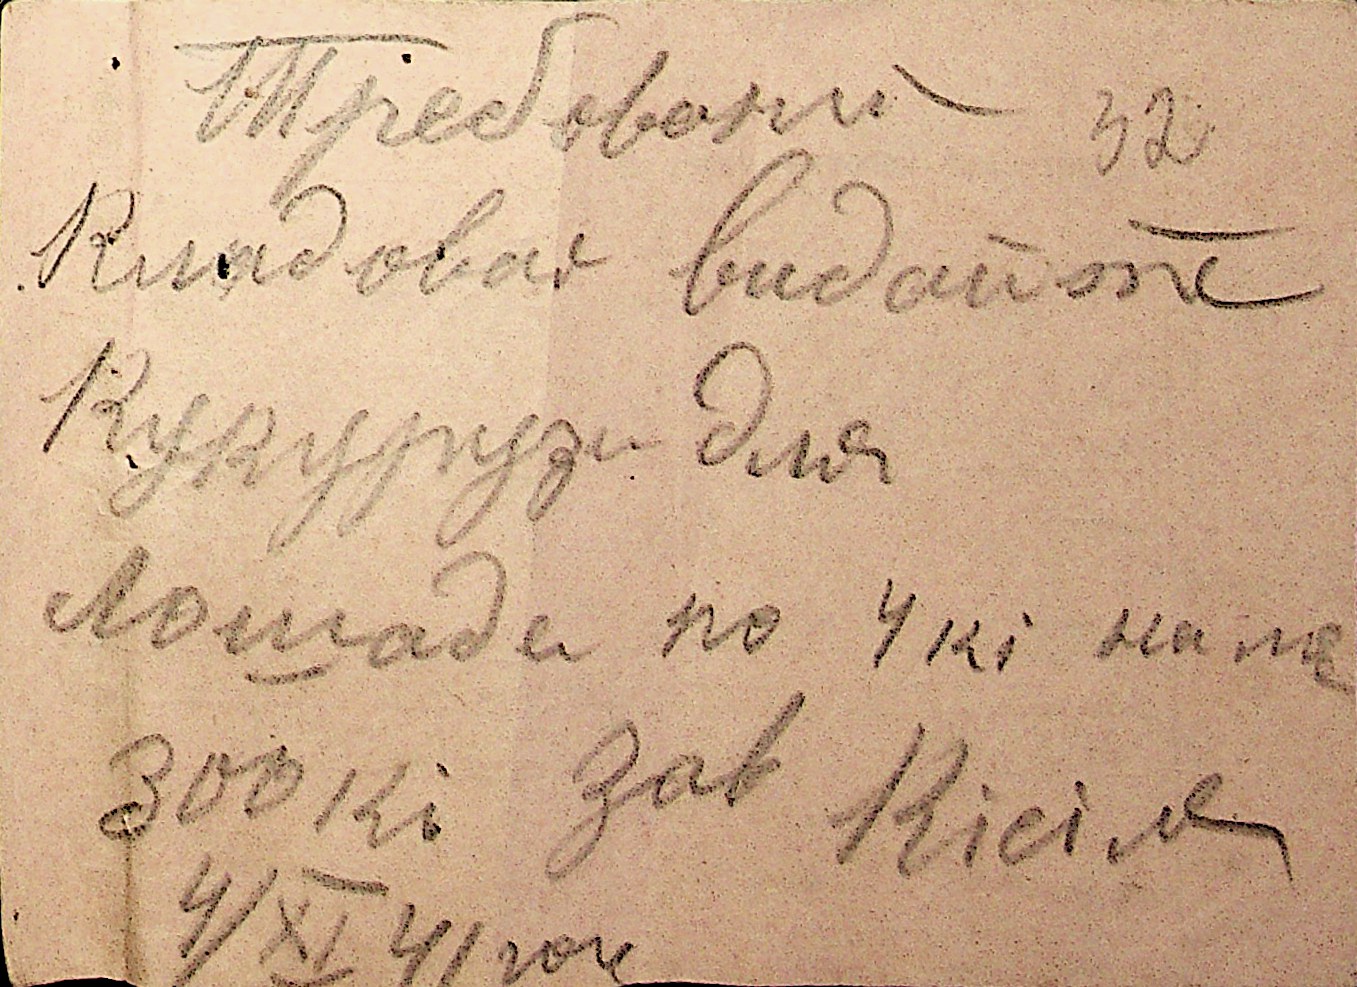 Требований 32
Кладовая видайте
Кукурузи для
Лошади по 4 кі
300 кі Зав Кісіль
4/XI 41 год